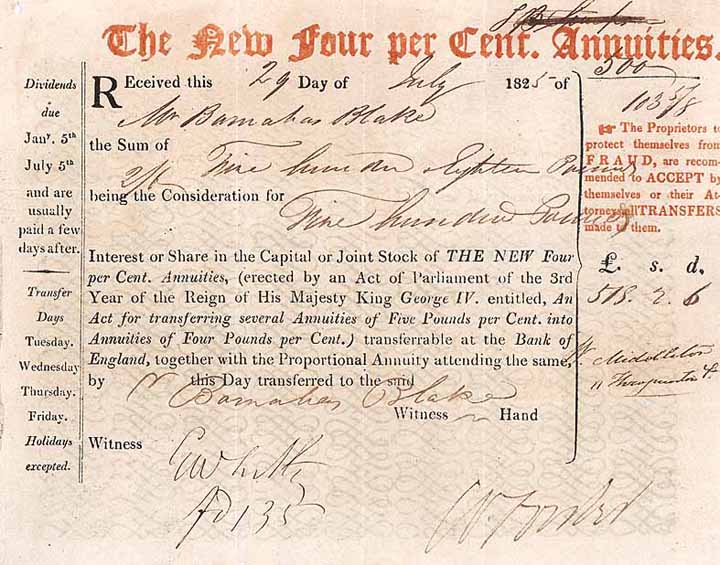 The New Four per Cent. Annuities.
500
103 5/8
Dividends
due
Janʸ. 5th
July 5th
and are
usually
paid a few
days after.
Transfer
Days
Tuesday.
Wednesday
Thursday.
Friday.
Holidays
excepted.
Received this 29 Day of July 1825 of
Mr Barnabas Blake
the Sum of Five hundred Eighteen Pounds
2/6
being the Consideration for
Five hundred Pounds
Interest or Share in the Capital or Joint Stock of THE NEW Four
per Cent. Annuities, (erected by an Act of Parliament of the 3rd
Year of the Reign of His Majesty King George IV. entitled, An
Act for transferring several Annuities of Five Pounds per Cent. into
Annuities of Four Pounds per Cent.) transferrable at the Bank of
England, together with the Proportional Annuity attending the same,
by this Day transferred to the said
Barnabas Blake
Witness Hand
Witness
135
☞ The Proprietors to
protect themselves from
FRAUD, are recom-
mended to ACCEPT by
themselves or their At-
torneys all TRANSFERS
made to them.
£. s. d.
518. 2. 6
Middleton